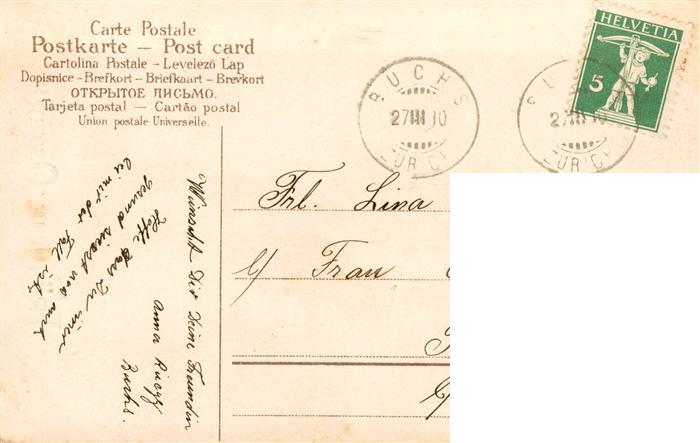 Carte Postale
Postkarte — Post card
Cartolina Postale - Levelező Lap
Dopisnice - Brefkort - Briefkaart - Brevkort
ОТКРЫТОЕ ПИСЬМО.
Tarjeta postal — Cartão postal
Union postale Universelle.
BUCHS
27 III 10
ZÜRICH
BUCHS
27 III 10
ZÜRICH
HELVETIA
5
Frl. Lina
c/ Frau
Wünscht Dir Deine Freundin
Anna
Buchs.
Hoffe Du
gesund was auch
bei mir der Fall ist.